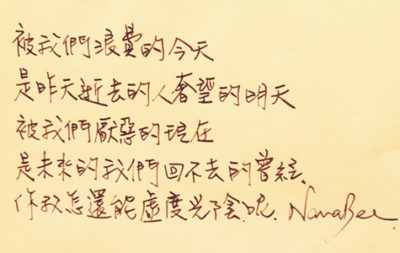 被我們浪費的今天
是昨天逝去的人奢望的明天
被我們厭惡的現在
是未來的我們回不去的曾經、
你我怎還能虛度光陰呢. NanaBee